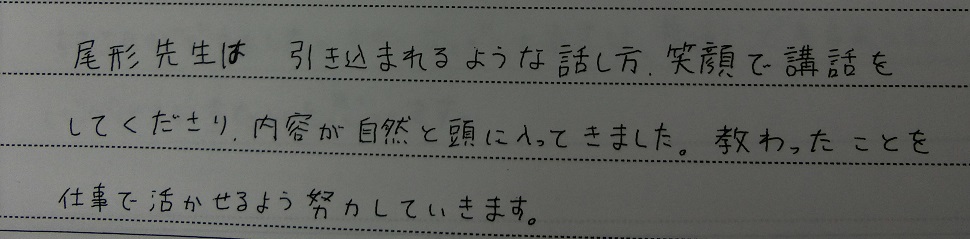 尾形先生は 引き込まれるような話し方、笑顔で講話を
してくださり、内容が自然と頭に入ってきました。教わったことを
仕事で活かせるよう努力していきます。